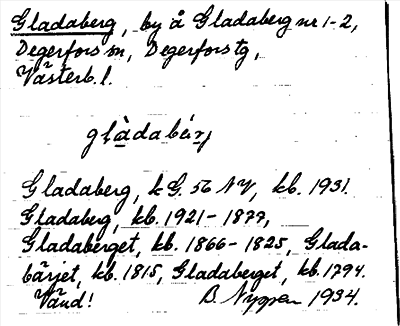 Gladaberg, by å Gladaberg nr 1-2,
Degerfors sn, Degerfors tg,
Västerb. l.
glàdabárj
Gladaberg, kG. 56 NV, kb. 1931.
Gladaberg, kb. 1921-1877,
Gladaberget, kb. 1866-1825, Glada-
bärjet, kb. 1815, Gladaberget, kb. 1794.
Vänd! B. Nyman 1934.